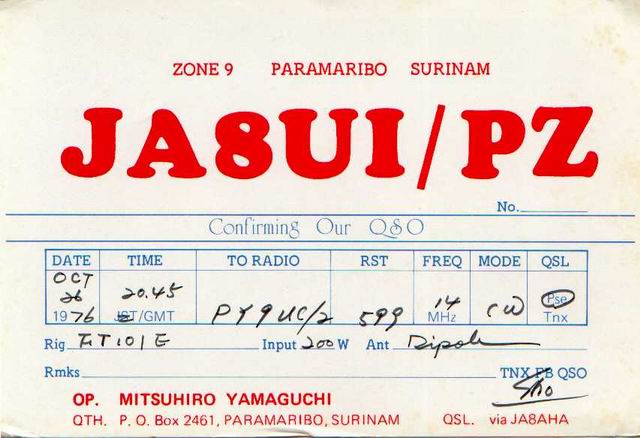 ZONE 9 PARAMARIBO SURINAM
JA8UI/PZ
No.
Confirming Our QSO
DATE TIME TO RADIO RST FREQ MODE QSL
OCT 26 1976 20.45 JST/GMT PY9UC/2 599 14 MHz CW Pse Tnx
Rig FT101E Input 200 W Ant Dipole
Rmks TNX FB QSO
OP. MITSUHIRO YAMAGUCHI
QTH. P. O. Box 2461, PARAMARIBO, SURINAM QSL. via JA8AHA